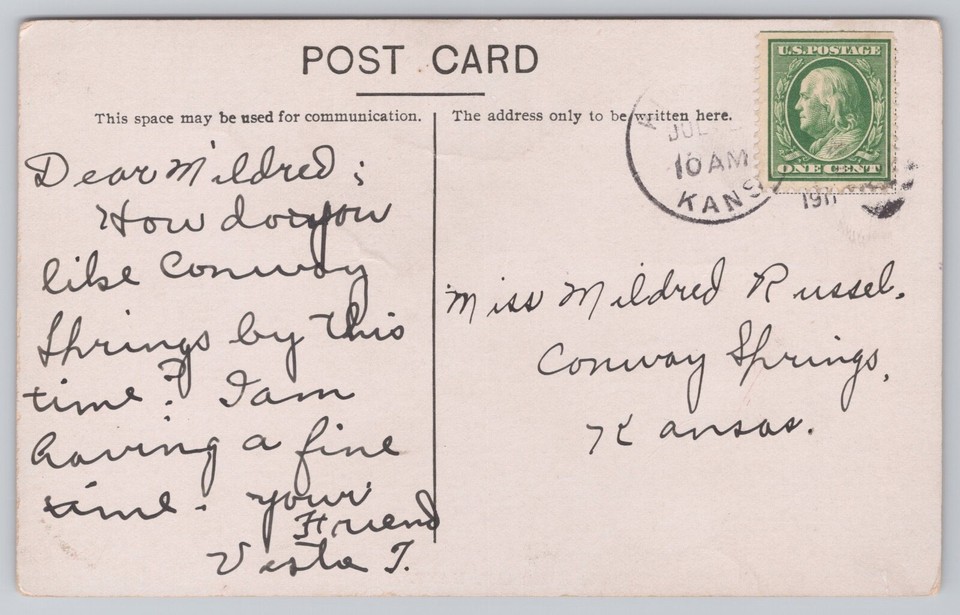 POST CARD
This space may be used for communication.
The address only to be written here.
U.S. POSTAGE
ONE CENT
JUL
10 AM
KANS
1911
Dear Mildred;
How do you
like Conway
Springs by this
time? I am
having a fine
time. your
Friend
Vesta T.
Miss Mildred Russel.
Conway Springs,
Kansas.